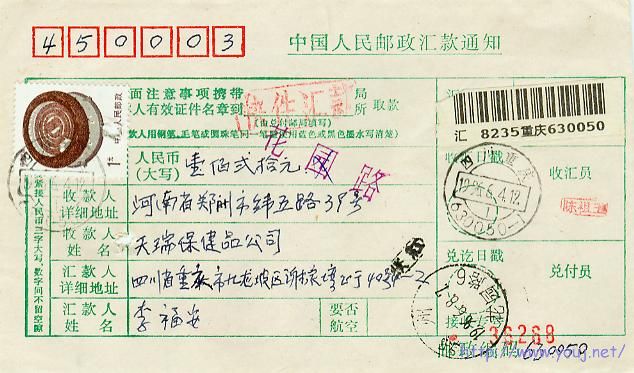 450003
中国人民邮政汇款通知
中国人民邮政
1分
面注意事项携带
人有效证件名章到
局
所
取款
快件汇款
(由兑付邮局填写)
款人用钢笔、毛笔或圆珠笔同一笔
用蓝色或黑色墨水写清楚)
人民币
(大写)
壹佰贰拾元
花园路
收款人
详细地址
河南省郑州市纬五路39号
收款人
姓名
天瑞保健品公司
汇款人
详细地址
四川省重庆市九龙坡区谢家湾
汇款人
姓名
李福安
要否
航空
紧接人民币三字大写,数字间不留空隙
汇 8235重庆630050
收汇日戳
收汇员
四川重庆
1996.6.4.12
630050
陈祖
兑讫日戳
兑付员
接收
36268
邮政编码
630050
http://www.youj.net/